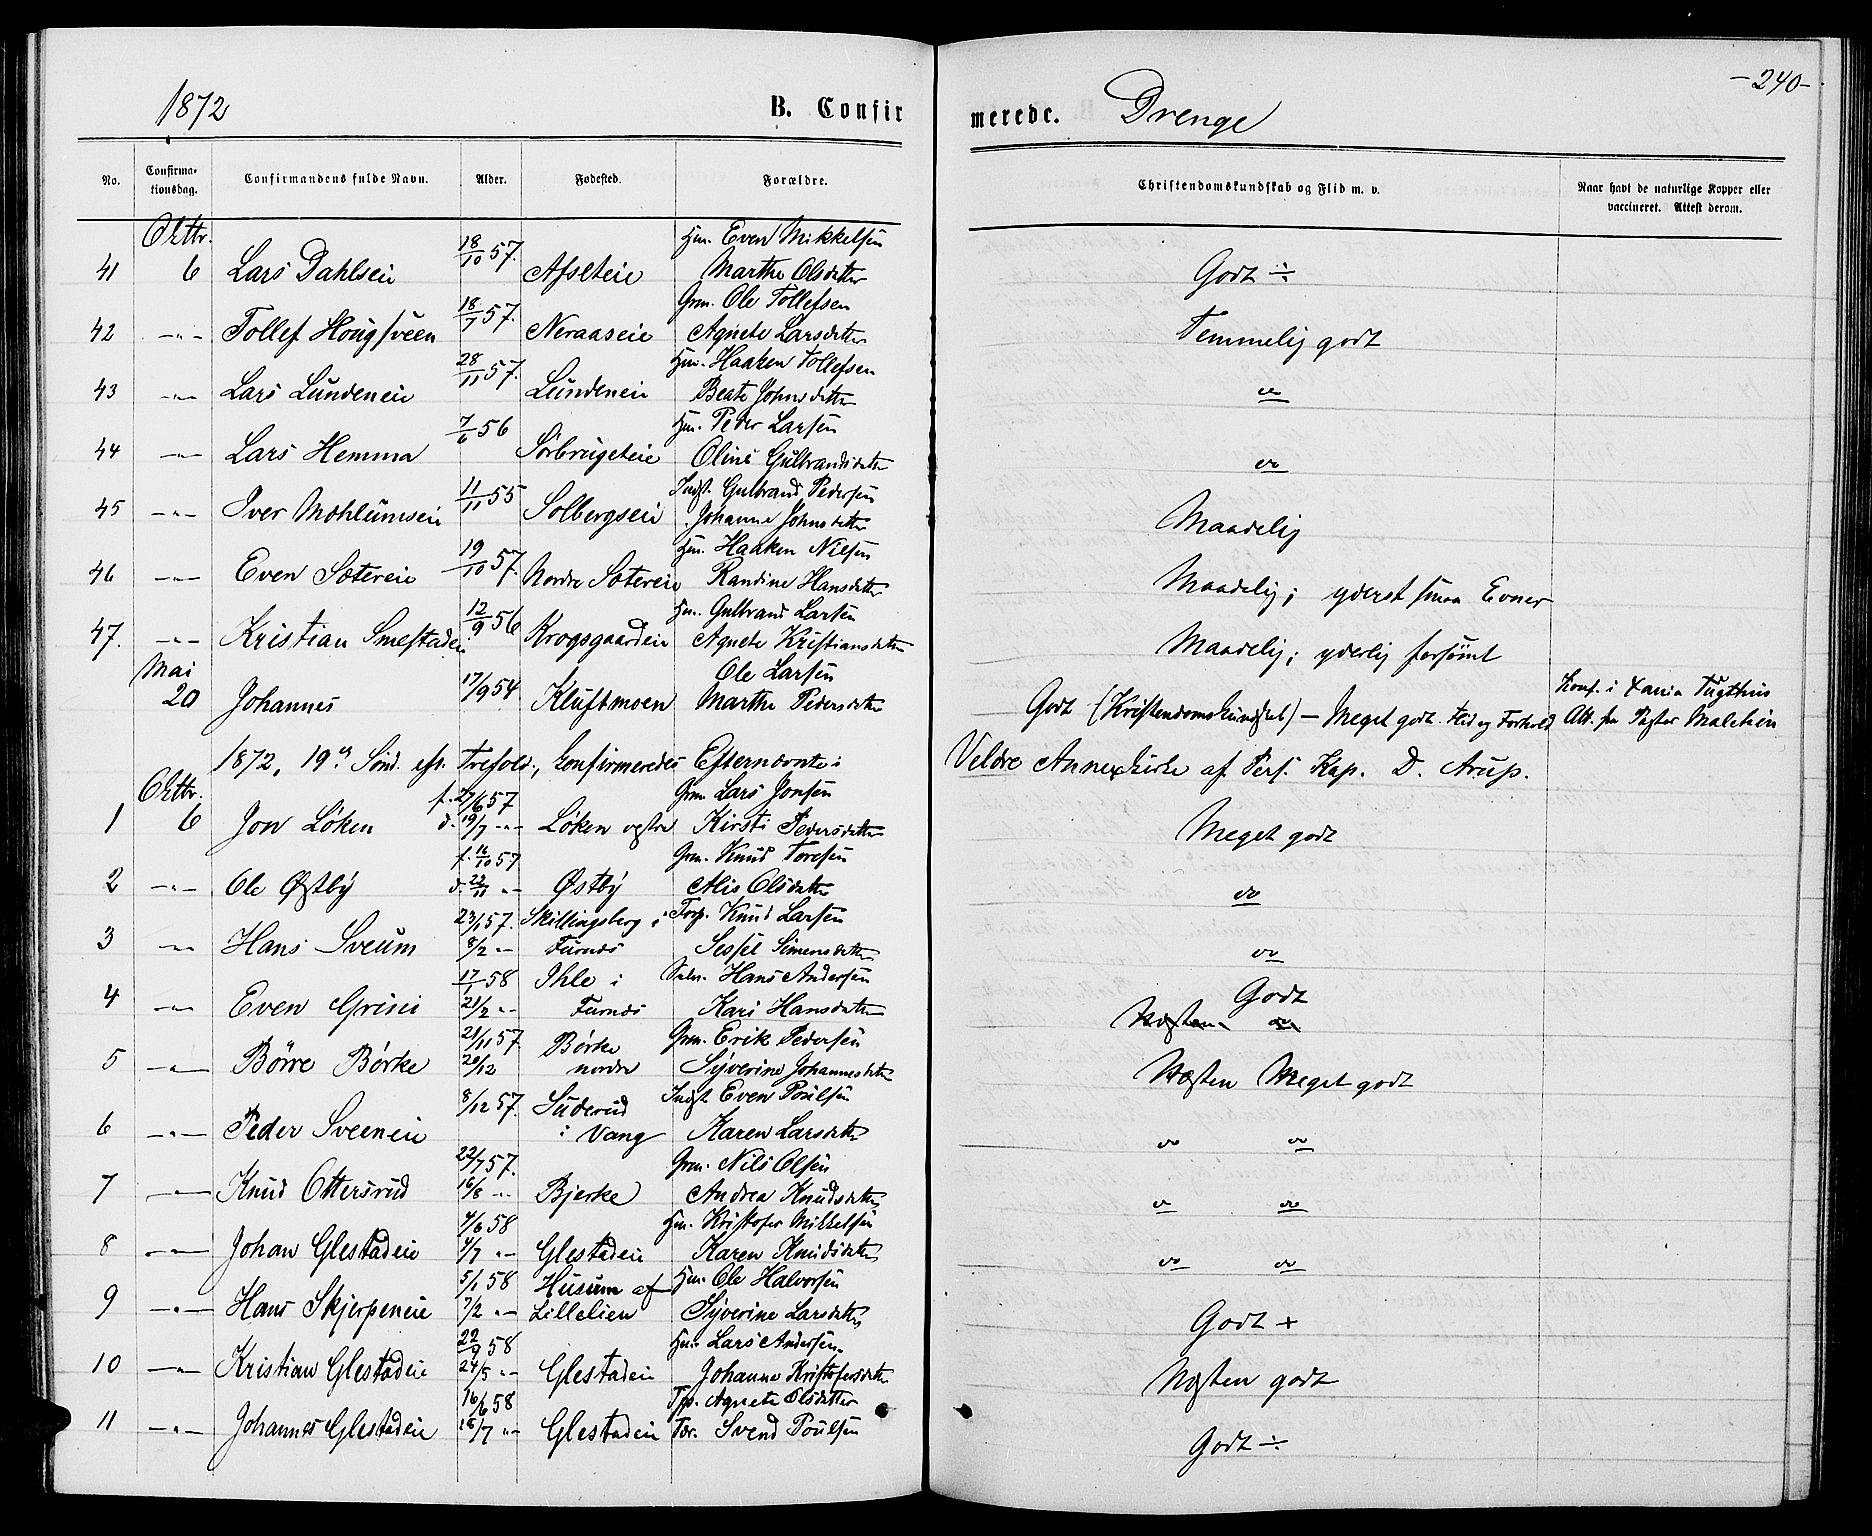 1872 B. Confirmerede. Drenge -240-
No. Confirmationsdag. Confirmandens fulde Navn. Alder. Fødested. Forældre. Christendomskundskab og Flid m. v. Naar havt de naturlige Kopper eller vaccineret. Attest derom.
Oktbr. 18/10 57. Hm. Even Mikkelsen
41 6 Lars Dahlseie Afseteie Marthe Olsdatter Godt ÷
18/7 57. Grm. Ole Tollefsen
42 -"- Tollef Hougsveen Neraaseie Agnete Larsdatter Temmelig godt
28/11 57. Hm. Haaken Tollefsen
43 -"- Lars Lundeneie Lundeneie Beate Johnsdatter do
7/6 56 Hm. Peder Larsen
44 -"- Lars Hemma Sørbrugeteie Oline Gulbrandsdatter do
11/11 55 Indst. Gulbrand Pedersen
45 -"- Iver Mohlumseie Solbergseie Johanne Johnsdatter Maadelig
19/10 57. Hm. Haaken Nilsen
46 -"- Even Sætereie Nordre Sætereie Randine Hansdatter Maadelig; yderst smaa Evner
12/9 56 Hm. Gulbrand Larsen
47. -"- Kristian Smestadeie Krogsgaardeie Agnete Kristiansdatter Maadelig; yderlig forsømt
Mai Ole Larsen Konf. i Xania Tugthus
20 Johannes 17/9 54 Kluftmoen Marthe Pedersdatter Godt (Kristendomskundskab) - Meget godt Flid og Forhold Att. fra Pastor Malchin
1872, 19de Sønd. eft. Trefold., Confirmeredes Efternævnte i Veldre Annexkirke af Pers. Kap. D. Arup.
Oktbr. f. 27/6 57 Grm. Lars Jonsen
1 6 Jon Løken d. 19/7 -"- Løken vestre Kirsti Pedersdatter Meget godt
f. 16/10 57 Grm. Knud Toresen
2 -"- Ole Østby d. 22/11 "- Østby Alis Olsdatter do
23/1 57. Skillingsberg i Torp. Knud Larsen
3 -"- Hans Sveum 8/2 "- Furnæs Sessel Simensdatter do
17/1 58 Ihle i Selv. Hans Andersen
4 -"- Even Grini 21/2 "- Furnæs Kari Hansdatter Godt
21/11 57. Børke Grm. Erik Pedersen
5 -"- Börre Börke 20/12 nordre Syverine Johannesdatter Næsten Meget godt
8/12 57. Suderud Indst. Even Poulsen
6 -"- Peder Sveeneie i Vang Karen Larsdatter do do
22/7 57. Grm. Nils Olsen
7 -"- Knud Ottersrud 16/8 "- Bjerke Andrea Knudsdatter do do
4/6 58 Hm. Kristofer Mikkelsen
8 -"- Johan Glestadeie 4/7 "- Glestadeie Karen Knudsdatter do do
5/1 58 Husum af Hm. Ole Halvorsen
9 -"- Hans Skjerpeneie 7/2 "- Lillelien Syverine Larsdatter Godt +
22/9 58 Hm. Lars Andersen
10 -"- Kristian Glestadeie 24/5 "- Glestadeie Johanne Kristofersdatter Næsten godt
16/6 58 Tjp. Agnete Olsdatter
11 -"- Johannes Glestadeie 18/7 "- Glestadeie Tor. Svend Poulsen Godt ÷